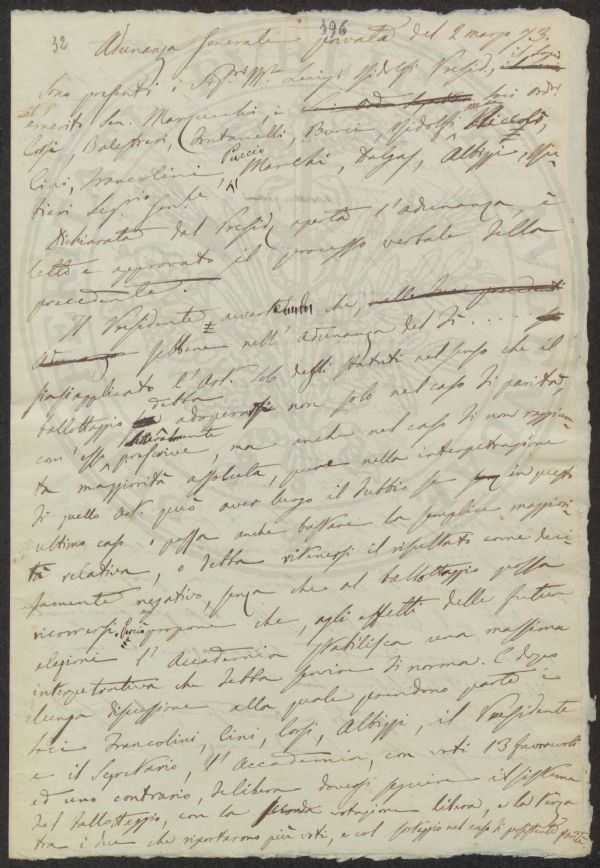 32
396
Adunanza Generale privata del 2 marzo 73.
Sono presenti i Sigri M.se Luigi Ridolfi Presid.,
emerito Sen. Marzucchi, i soci ord:
Corsi, Balestreri, Fontanelli, Burci, Ridolfi Niccolò,
Cini, Francolini, Puccio, Marchi, Dalgas, Albizzi,
tieri Segr.
Dichiarata dal Presid. aperta l'adunanza, è
letto e approvato il processo verbale della
precedente.
Il Presidente, che,
sebbene nell'adunanza del dì ....
siasi applicato l'Art. degli Statuti nel senso che il
ballottaggio debba adoperarsi non solo nel caso di parità,
com'esso letteralmente prescrive, ma anche nel caso di non raggiun-
ta maggiorità assoluta, pure nella interpetrazione
di quello Art. può aver luogo il dubbio se in questo
ultimo caso o possa anche bastare la semplice maggiori-
tà relativa, o debba ritenersi il risultato come deci-
samente negativo, senza che al ballottaggio possa
ricorrersi. Perciò propone che, agli effetti delle future
elezioni l'Accademia stabilisca una massima
interpetrativa che debba servire di norma. E dopo
lunga discussione alla quale prendono parte i
soci Francolini, Cini, Corsi, Albizzi, il Presidente
e il Segretario, l'Accademia, con voti 13 favorevoli
ed uno contrario, delibera doversi seguire il sistema
del ballottaggio, con la seconda votazione libera, e la terza
tra i due che riportarono più voti, e col sorteggio nel caso di parità